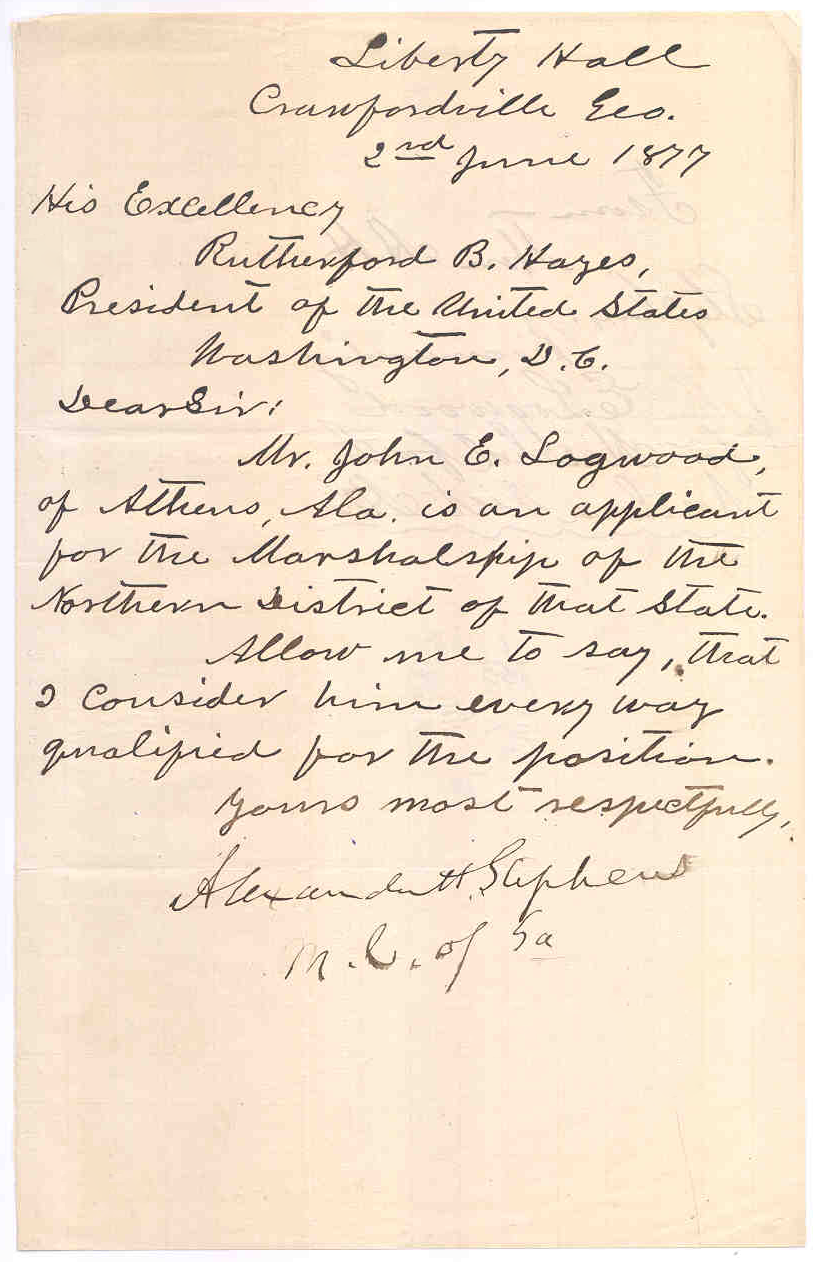 Liberty Hall
Crawfordville Geo.
2nd June 1877
His Excellency
Rutherford B. Hayes,
President of the United States
Washington, D.C.
Dear Sir:
Mr. John E. Logwood,
of Athens, Ala. is an applicant
for the Marshalship of the
Northern District of that State.
Allow me to say, that
I consider him every way
qualified for the position.
Yours most respectfully,
Alexander H. Stephens
M.C. of Ga